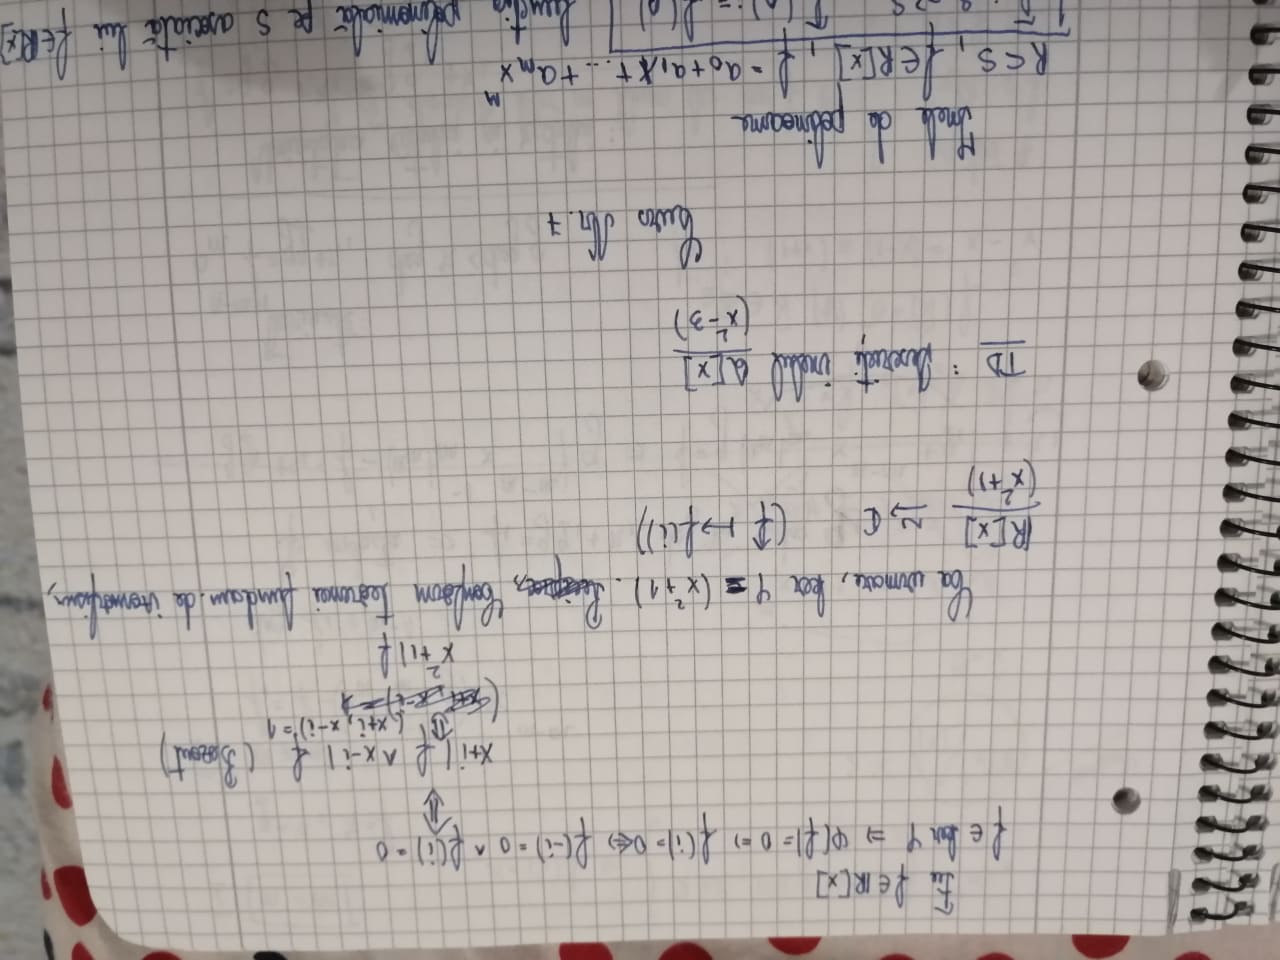 Fie f ∈ R[x]
f ∈ ker φ ⇒ φ(f) = 0 ⇒ f(i) = 0 ⇔ f(-i) = 0 ∧ f(i) = 0
⇕
x+i | f ∧ x-i | f (Bezout)
⇕ (x+i, x-i) = 1
x²+1 | f
Ca urmare, ker φ = (x²+1). Conform teoremei fundam. de izomorfism,
R[x]/(x²+1) ≃ C (f̂ ↦ f(i))
TD : Descrieți inelul Q[x]/(x²-3)
Curs Nr. 7
Inele de polinoame
R ⊂ S, f ∈ R[x], f = a₀ + a₁x + ... + aₘxᵐ
funcția polinomială pe S asociată lui f∈R[x]